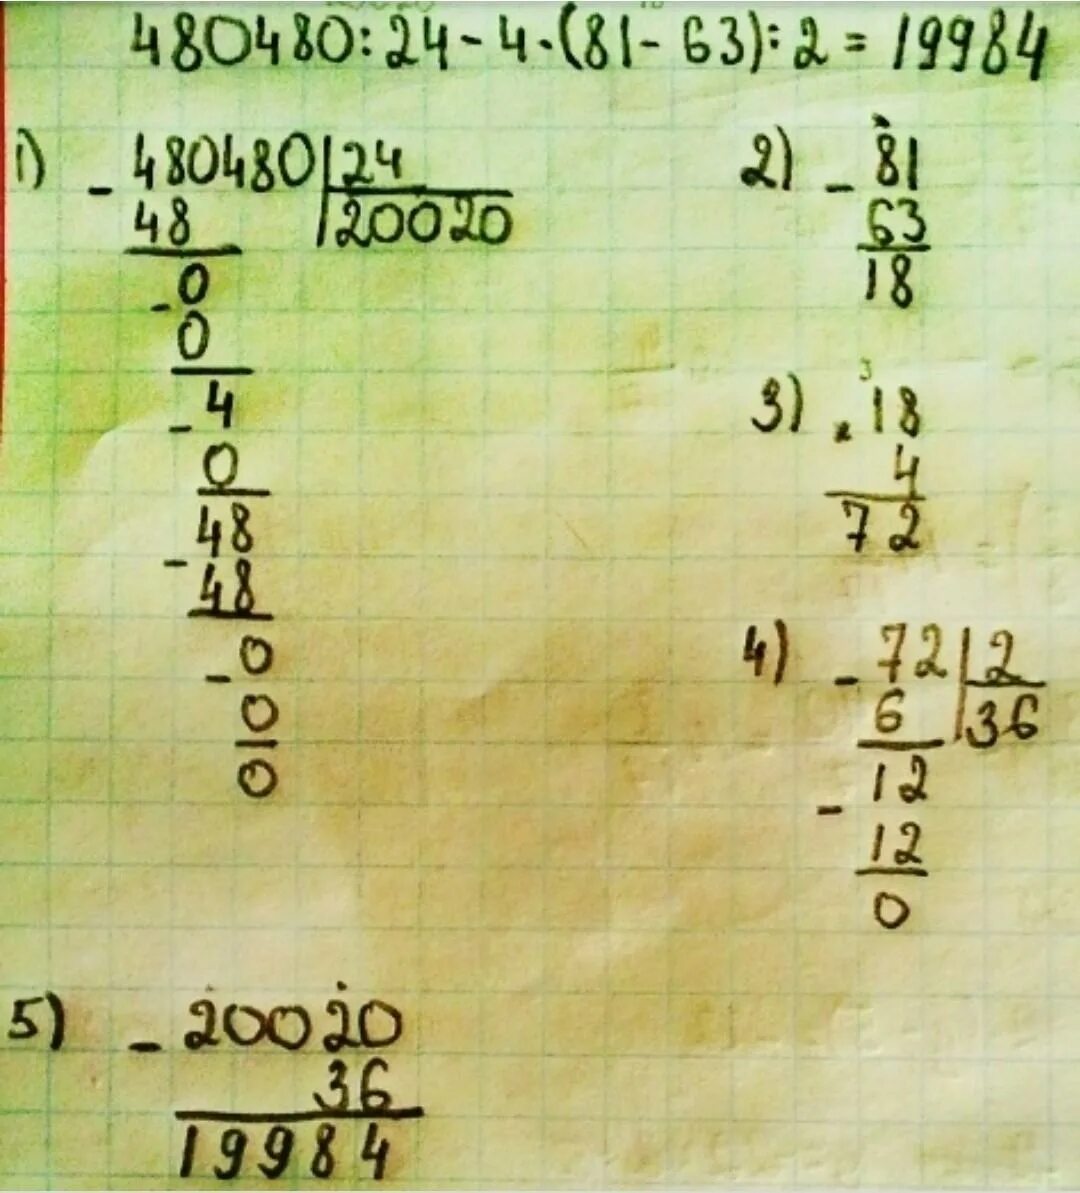 480480:24-4·(81-63):2=19984
1) - 480480 | 24
48 | 20020
- 0
0
- 4
0
- 48
48
- 0
0
0
2) - 81
63
18
3) · 18
3
4
72
4) - 72 | 2
6 | 36
- 12
12
0
5) - 20020
36
19984